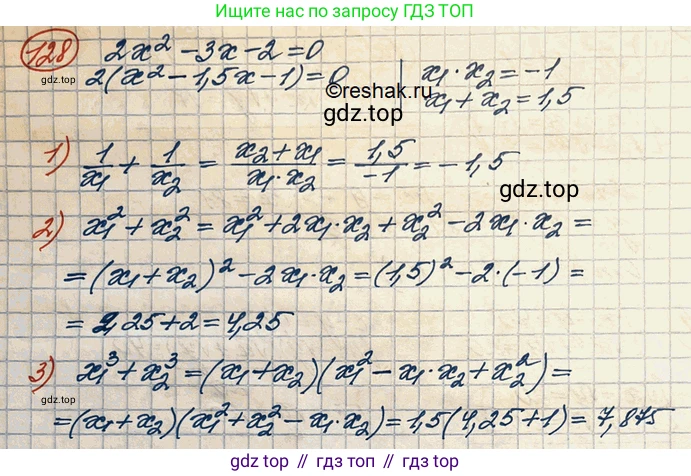 Ищите нас по запросу ГДЗ ТОП
128 2x² - 3x - 2 = 0
2(x² - 1,5x - 1) = 0 | x₁ · x₂ = -1
x₁ + x₂ = 1,5
©reshak.ru
gdz.top
gdz.top
1) 1/x₁ + 1/x₂ = (x₂ + x₁)/(x₁ · x₂) = 1,5/-1 = -1,5
gdz.top
2) x₁² + x₂² = x₁² + 2x₁ · x₂ + x₂² - 2x₁ · x₂ =
= (x₁ + x₂)² - 2x₁ · x₂ = (1,5)² - 2 · (-1) =
= 2,25 + 2 = 4,25
3) x₁³ + x₂³ = (x₁ + x₂)(x₁² - x₁ · x₂ + x₂²) =
gdz.top
= (x₁ + x₂)(x₁² + x₂² - x₁ · x₂) = 1,5(4,25 + 1) = 7,875
gdz.top // гдз топ // гдз.топ